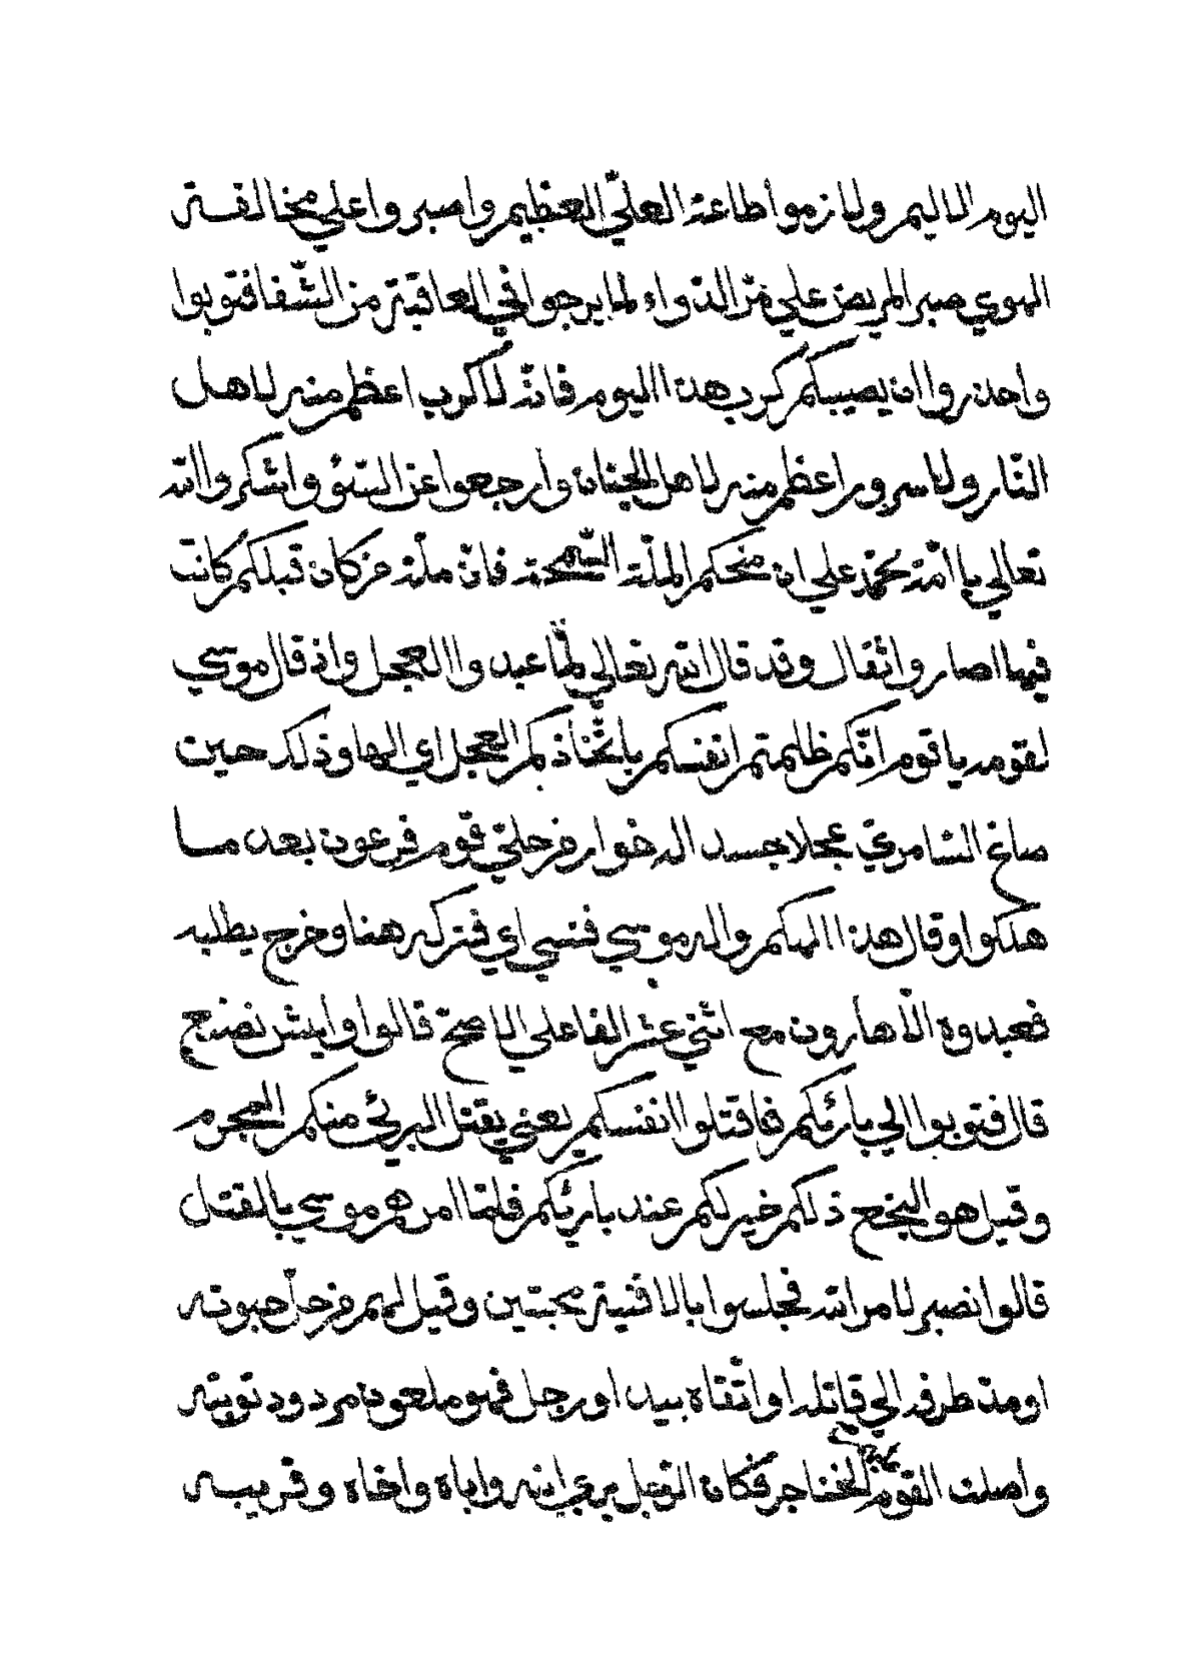 اليوم الاليم ولازموا طاعة العليّ العظيم واصبروا علي مخالفة
الهوي صبر المريض علي مرّ الدّواء لما يرجوا في العاقبة من الشّفا فتوبوا
واحذروا ان يصيبكم كرب هذا اليوم فانّه لا كرب اعظم منه لاهل
النّار ولا سرور اعظم منه لاهل الجنان وارجعوا عن السّئو واشكروا الله
تعالي يا امّة محمّد علي ان منحكم الملّة السّمحة فانّ ملّة من كان قبلكم كانت
فيها اصار واثقال وقد قال الله تعالي لمّا عبدوا العجل واذ قال موسي
لقومه يا قوم انّكم ظلمتم انفسكم باتّخاذكم العجل اي الها وذلك حين
صاغ السّامريّ عجلا جسدا له خوار من حليّ قوم فرعون بعد ما
هلكوا وقال هذا الهكم واله موسي فنسي اي فتركه هنا وخرج يطلبه
فعبدوه الّا هارون مع اثني عشر الفا علي الاصحّ قالوا وايش نصنع
قال فتوبوا الي بارئكم فاقتلوا انفسكم يعني يقتل البريّ منكم المجرم
وقيل هو البخع ذلكم خير لكم عند بارئكم فلمّا امرهم موسي بالقتل
قالوا نصبر لامر الله فجلسوا بالافنية محبتين وقيل لهم من حلّ حبوته
او مدّ طرفه الي قاتله او اتّقاه بيد او رجل فهو ملعون مردود توبته
واصلت القوم عليهم الخناجر فكان الرّجل يري ابنه واباه واخاه وقريبه